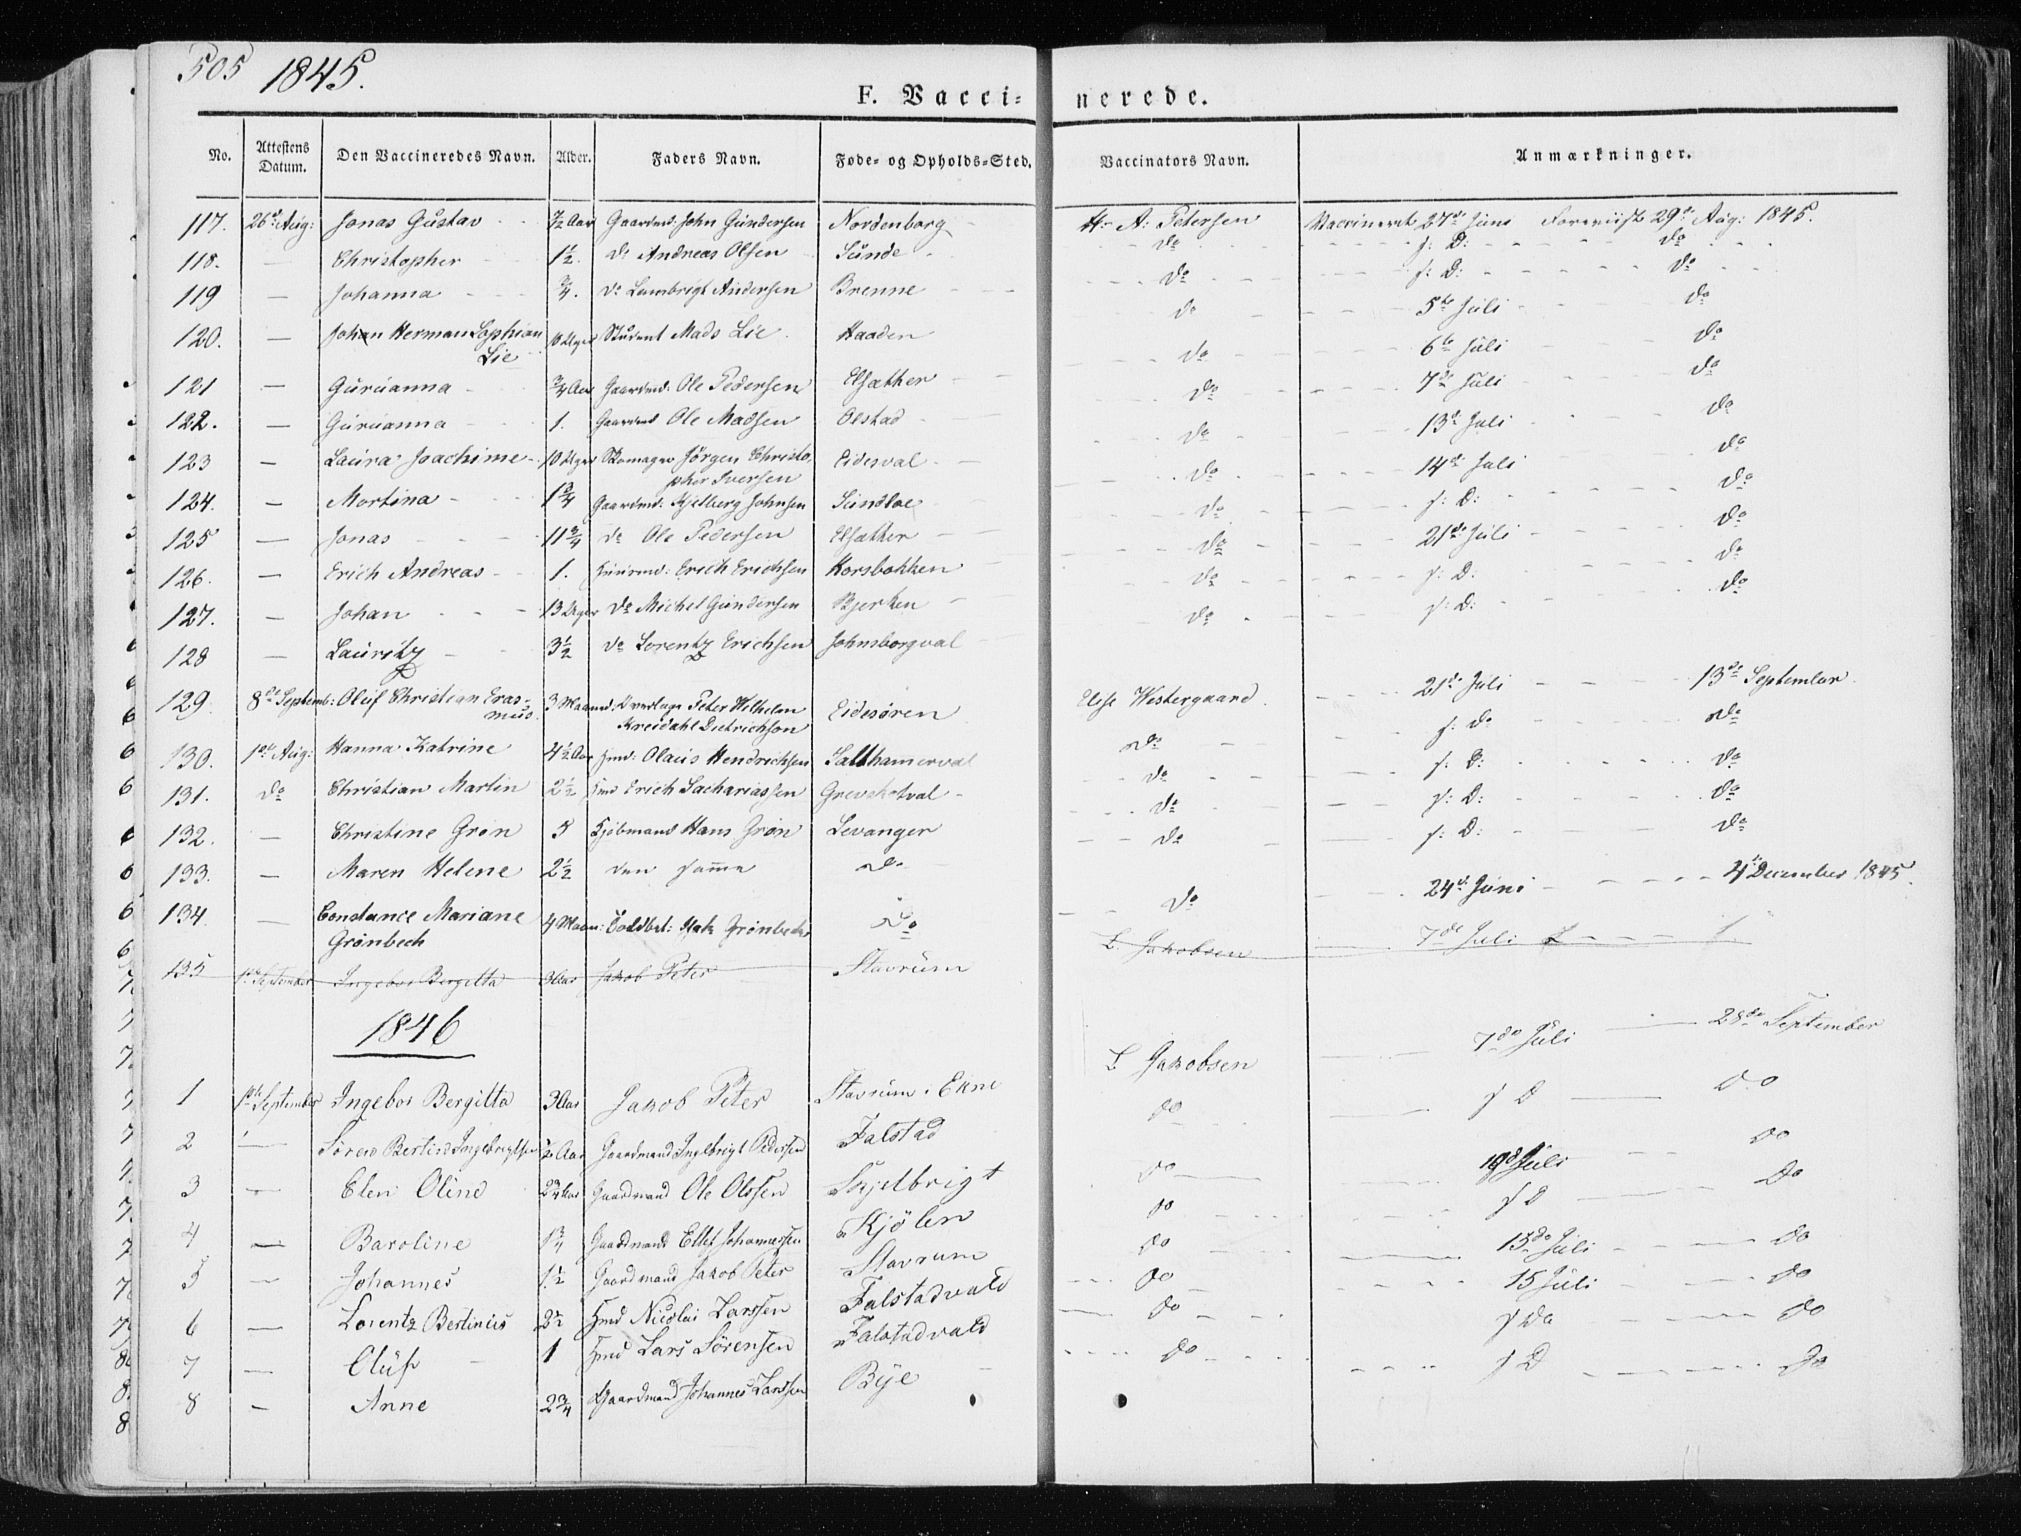 505 1845.
F. Vaccinerede.
No. Attestens Datum. Den Vaccineredes Navn. Alder. Faders Navn. Føde- og Opholds-Sted. Vaccinators Navn. Anmærkninger.
117. 26de Aug: Jonas Gustav ½ Aar Gaardmd. John Gundersen Nordenborg H. A: Petersen Vaccineret 27de Juni Foreviist 29de Aug: 1845.
118. — Christopher 1½. do Andreas Olsen Sunde do s: D: do
119 — Johanna ¾. do Lambrigt Andersen Brenne do s: D: do
120. — Johan Herman Sophian Lie 10 Uger Student Mads Lie Haaden do 5te Juli do
121 — Guruanna ¾ Aar Gaardmd: Ole Pedersen Elsæther do 6te Juli do
122. — Guruanna 1. Gaardmd Ole Madsen Olstad do 7de Juli do
123 — Laura Joachime 10 Uger Skomager Jørgen Christopher Iversen Eidesval do 13de Juli do
124. — Mortina 1¾ Gaardmd: Kjelberg Johnsen Sundloe do 14de Juli do
125 — Jonas 11¾ do Ole Pedersen Elsæther do s: D: do
126. — Erich Andreas 1. Huusmd: Erich Erichsen Korsbakken do 21de Juli do
127. — Johan 13 Uger do Michel Gundersen Bjerken do s: D: do
128 — Lauritz 3½ do Lorentz Erichsen Johnsborgval do s: D: do
129 8de Septemb: Oluf Christian Erasmus. 3 Maaned: Peter Wilhelm Kreidahl Dietrichson Eidesøren Elise Westergaard. 21de Juli 13de September
130. 1ste Aug: Hanna Katrine 4½ Aar Hmd: Olaus Hendrichsen Salthamerval do s: do do
131. do Christian Martin 2½ Hmd Erich Sachariassen Grevskotval do s: D: do
132. — Christine Grøn 5 Kjøbmand Hans Grøn Levanger do s: D: do
133. — Maren Helene 2½ den samme do do s: D: do
134 — Constance Mariane Grønbech 4 Maan: Toldbet: Grønbech do do 24de Juni 4de December 1845.
135 1ste September Ingebor Bergitta 3 Aar Jakob Peter Stavrum L. Jakobsen 7de Juli
1846
1 1ste September Ingebor Bergitta 3 Aar Jakob Peter Stavrum i Ekne L Jakobsen 7de Juli 28de September
2 — Søren Bertin Ingebrigtsen ½ Aar Gaardmand Ingebrigt Pedersen Falstad do s D do
3 — Elen Oline 2¾ Aar Gaardmand Ole Olssen Skjelbrigt do 10de Juli do
4 — Baroline 1¾ Gaardmand Ellef Johannessen Kjölen do s D do
5 — Johannes 1½ Gaardmand Jakob Peter Stavrum do 13de Juli do
6 — Lorentz Bertinius 2½ Hmd Nicolai Larssen Falstadvald do 15 Juli do
7 — Oluf 1 Hmd Lars Sörensen Falstadvald do s Do do
8 — Anne 2¾ Gaardmand Johannes Larssen Bye do s D do